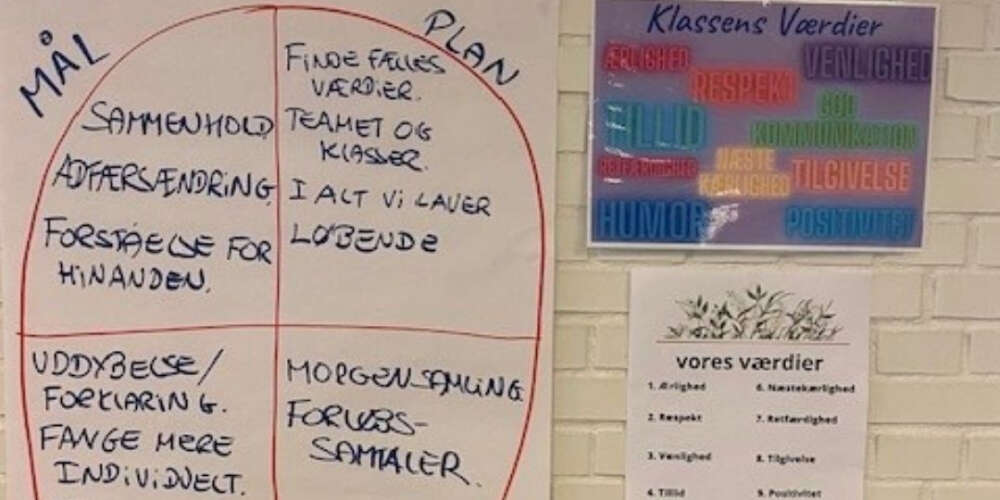 MÅL
SAMMENHOLD
ADFÆRSÆNDRING
FORSTÅELSE FOR
HINANDEN.
PLAN
FINDE FÆLLES
VÆRDIER.
TEAMET OG
KLASSER.
I ALT VI LAVER
LØBENDE
UDDYBELSE/
FORKLARING.
FANGE MERE
INDIVIDUELT.
MORGENSAMLING
FORLØBS-
SAMTALER.
Klassens Værdier
ÆRLIGHED
VENLIGHED
RESPEKT
GOD
KOMMUNIKATION
TILLID
RETFÆRDIGHED
NÆSTE
KÆRLIGHED
TILGIVELSE
HUMOR
POSITIVITET
vores værdier
1. Ærlighed
2. Respekt
3. Venlighed
4. Tillid
6. Næstekærlighed
7. Retfærdighed
8. Tilgivelse
9. Positivitet